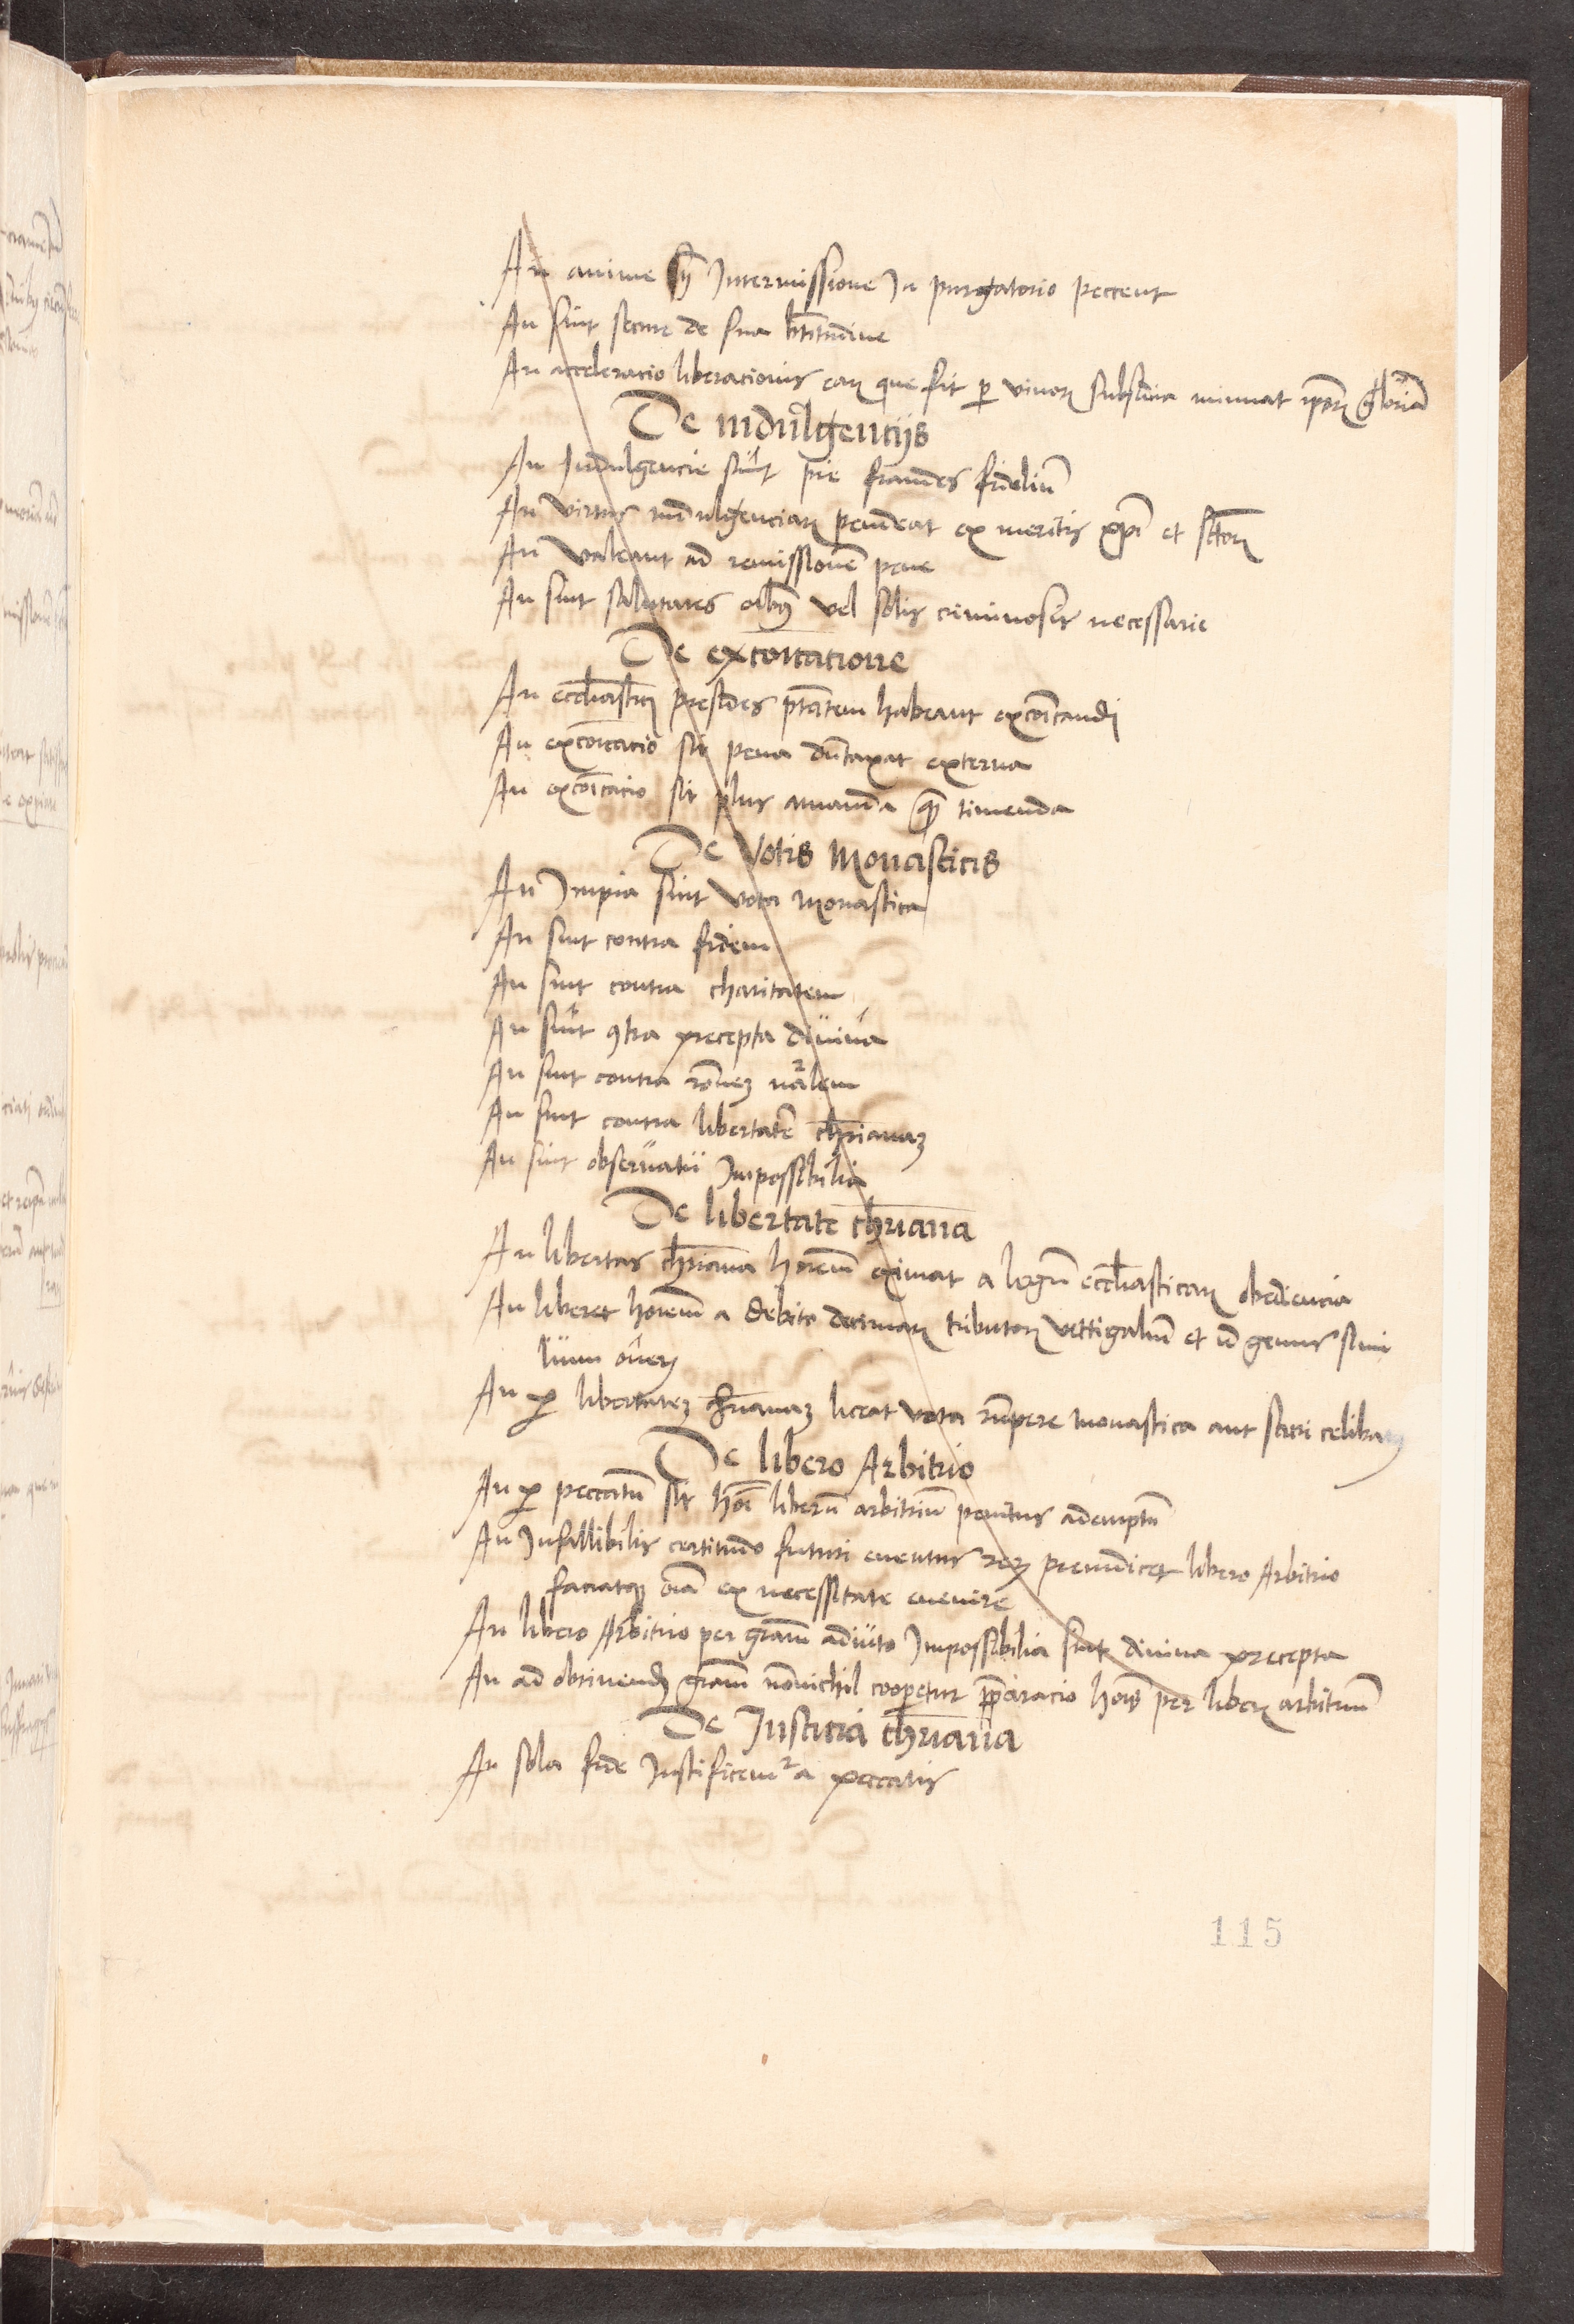 An anime sñ Intermissione In purgatorio peccent
An sint secure de sua btitudine
An acceleracio liberacionis earꝫ que fit ꝑ vivorꝫ subsidia minuat ipõrꝫ gloriã
De indulgencijs
An Indulgencie sint pie fraudes fideliũ
An virtus indulgenciarꝫ pendeat ex meritis xp̃i et sctorꝫ
An valeant ad remissionẽ pene
An sint salutares oĩbꝫ vel solis criminosis necessarie
De excõicatione
An eccl̃iasticꝫ presides ptãtem habeant excõicandi
An excõicacio sit pena dũtaxat externa
An excõicacio sit plus amanda qꝫ timenda
De Votis Monasticis
An Impia sint vota Monastica
An sint contra fidem
An sint contra charitatem
An sint ꝯtra precepta divina
An sint contra rõnez nãlem
An sint contra libertatẽ chr̃ianaꝫ
An sint observatu Impossibilia
De libertate chr̃iana
An libertas chr̃iana hoĩem eximat a legũ eccl̃iasticarꝫ obediencia
An liberet hoĩem a debito decimarꝫ tributorꝫ vettigaliũ et id genus simi
lium onerꝫ
An ꝑ libertateꝫ chr̃ianaꝫ liceat vota rũpere Monastica aut sacri celibatꝫ
De libero Arbitrio
An ꝑ peccatũ sit hoĩ liberũ arbitriũ penitus ademptũ
An Infallibilis certitudo futuri eventus rerꝫ preiudicet libero Arbitrio
faciatqꝫ oĩa ex necessitate evenire
An libero Arbitrio per grãm adiuto Impossibilia sint divina precepta
An ad obtinendꝫ grãm nõnichil cooperetur p̃paracio hoĩs per liberꝫ arbitriũ
De Iusticia chr̃iana
An sola fide Iustificemꝰ a peccatis
115